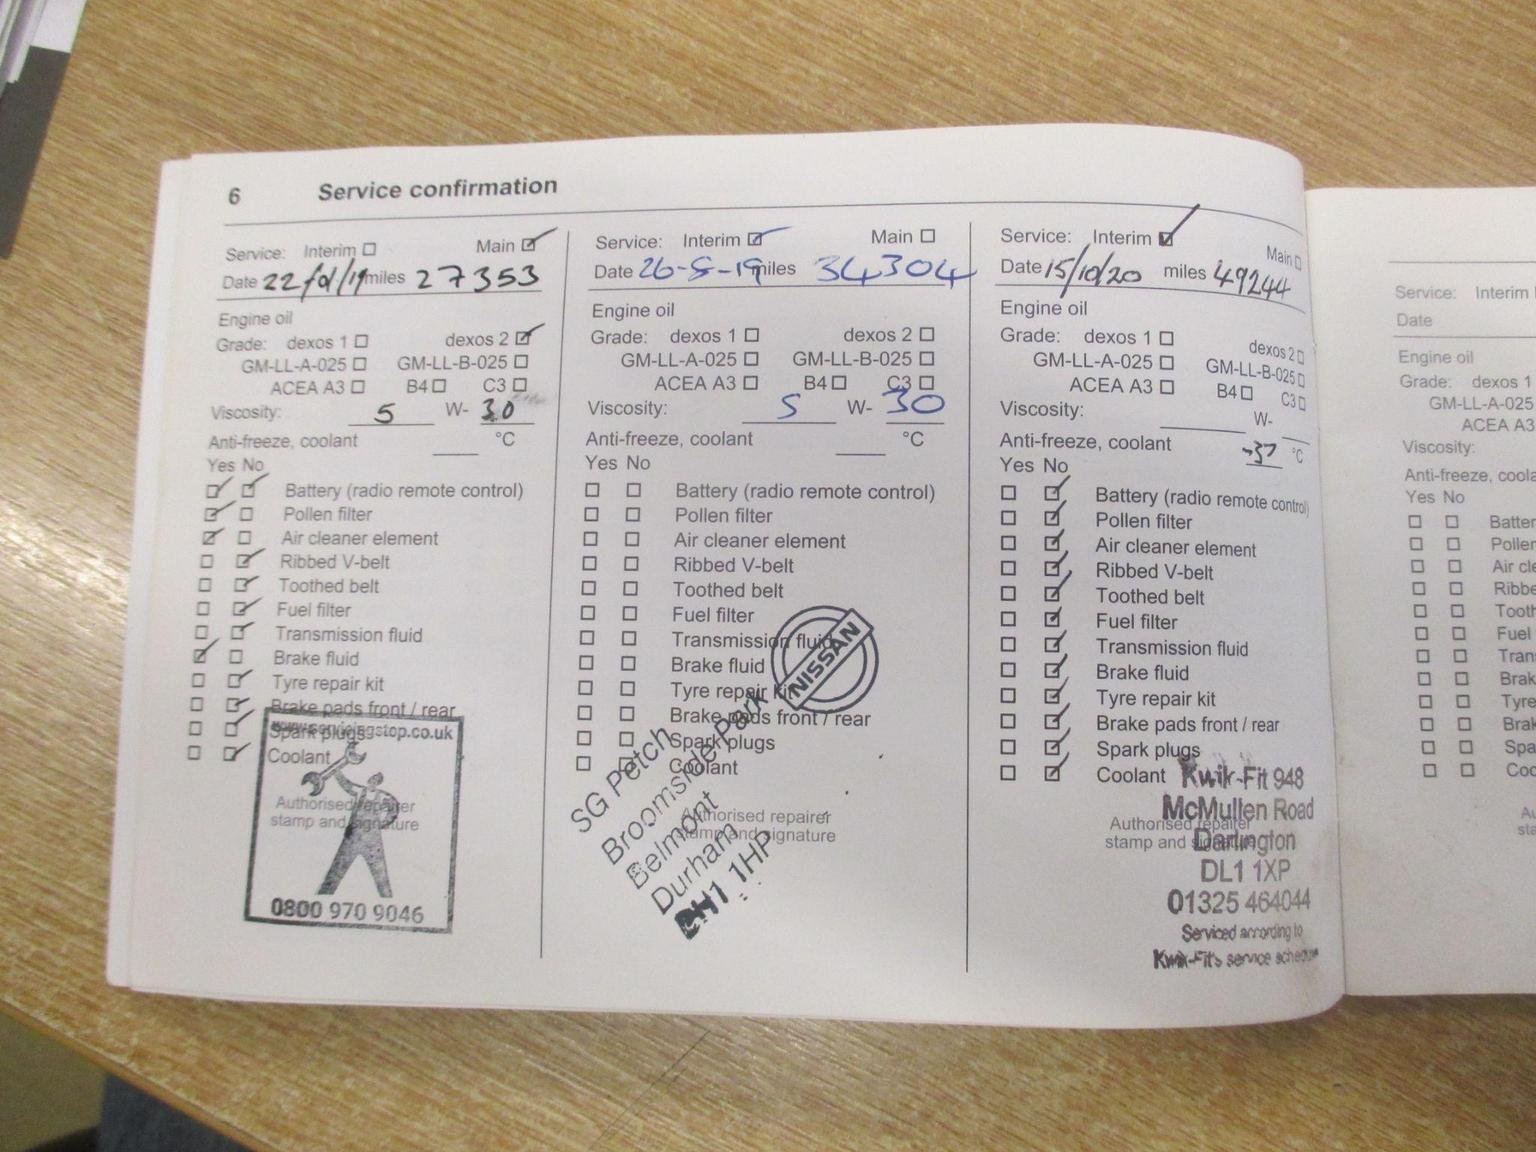 6 Service confirmation
Service: Interim Main
Date miles 27353
Engine oil
Grade: dexos 1 dexos 2
GM-LL-A-025 GM-LL-B-025
ACEA A3 B4 C3
Viscosity: 5 W- 30
Anti-freeze, coolant °C
Yes No
Battery (radio remote control)
Pollen filter
Air cleaner element
Ribbed V-belt
Toothed belt
Fuel filter
Transmission fluid
Brake fluid
Tyre repair kit
Brake pads front / rear
Spark plugs
Coolant
Authorised repairer
stamp and signature
www.servicingstop.co.uk
0800 970 9046
Service: Interim Main
Date 26-8-19 miles 34304
Engine oil
Grade: dexos 1 dexos 2
GM-LL-A-025 GM-LL-B-025
ACEA A3 B4 C3
Viscosity: 5 W- 30
Anti-freeze, coolant °C
Yes No
Battery (radio remote control)
Pollen filter
Air cleaner element
Ribbed V-belt
Toothed belt
Fuel filter
Transmission fluid
Brake fluid
Tyre repair kit
Brake pads front / rear
Spark plugs
Coolant
Authorised repairer
stamp and signature
NISSAN
SG Petch
Broomside Park
Belmont
Durham
DH1 1HP
Service: Interim Main
Date 15/10/20 miles 49244
Engine oil
Grade: dexos 1 dexos 2
GM-LL-A-025 GM-LL-B-025
ACEA A3 B4 C3
Viscosity: W-
Anti-freeze, coolant -37 °C
Yes No
Battery (radio remote control)
Pollen filter
Air cleaner element
Ribbed V-belt
Toothed belt
Fuel filter
Transmission fluid
Brake fluid
Tyre repair kit
Brake pads front / rear
Spark plugs
Coolant
Authorised repairer
stamp and signature
Kwik-Fit 948
McMullen Road
Darlington
DL1 1XP
01325 464044
Serviced according to
Kwik-Fit's service schedule
Service: Interim
Date
Engine oil
Grade: dexos 1
GM-LL-A-025
ACEA A3
Viscosity:
Anti-freeze, coola
Yes No
Batter
Pollen
Air cle
Ribbe
Tooth
Fuel
Tran
Brak
Tyre
Brak
Spa
Coo
Au
sta